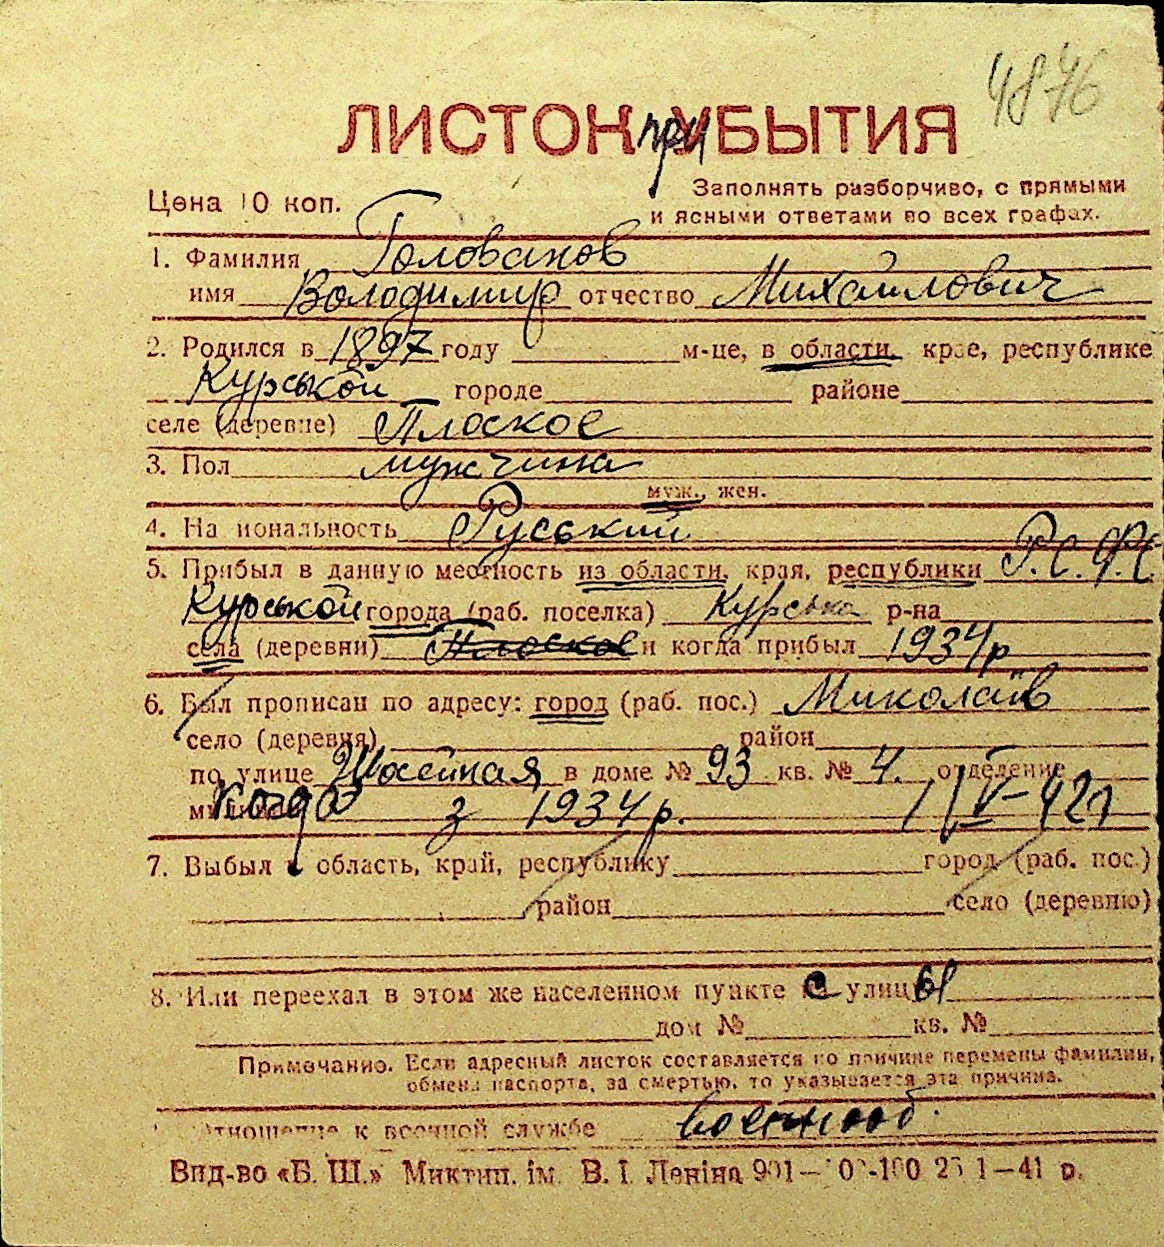 4876
ЛИСТОК при УБЫТИЯ
Цена 10 коп.
Заполнять разборчиво, с прямыми
и ясными ответами во всех графах.
1. Фамилия Голованов
имя Володимир отчество Михайлович
2. Родился в 1897 году м-це, в области, крае, республике
Курськой городе районе
селе (деревне) Плоское
3. Пол мужчина
муж., жен.
4. На иональность Руський
5. Прибыл в данную местность из области, края, республики Р.С.Ф.С.
Курськой города (раб. поселка) Курська р-на
села (деревни) Плоское и когда прибыл 1934 р
6. Был прописан по адресу: город (раб. пос.) Миколаїв
село (деревня) район
по улице Шосейная в доме № 93 кв. № 4. отделение
когда з 1934 р. 1/V-42 г
7. Выбыл в область, край, республику город (раб. пос.)
район село (деревню)
8. Или переехал в этом же населенном пункте с улицы
дом № кв. №
Примечание. Если адресный листок составляется по причине перемены фамилии,
обмена паспорта, за смертью, то указывается эта причина.
Отношение к военной службе военнооб.
Вид-во «Б. Ш.» Микттип. ім. В. І. Леніна 1—41 р.